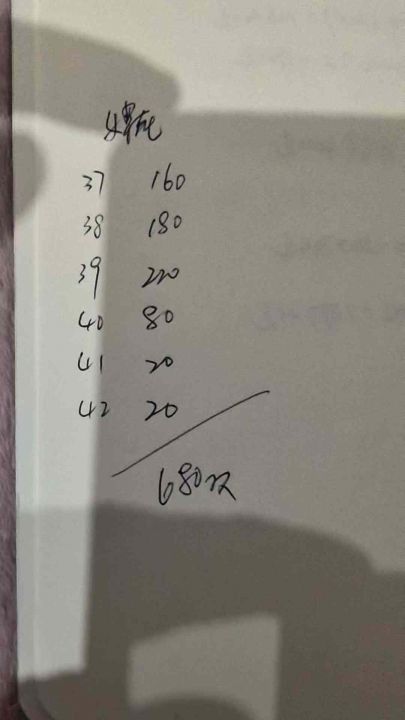 37 160
38 180
39 220
40 80
41 20
42 20
680双